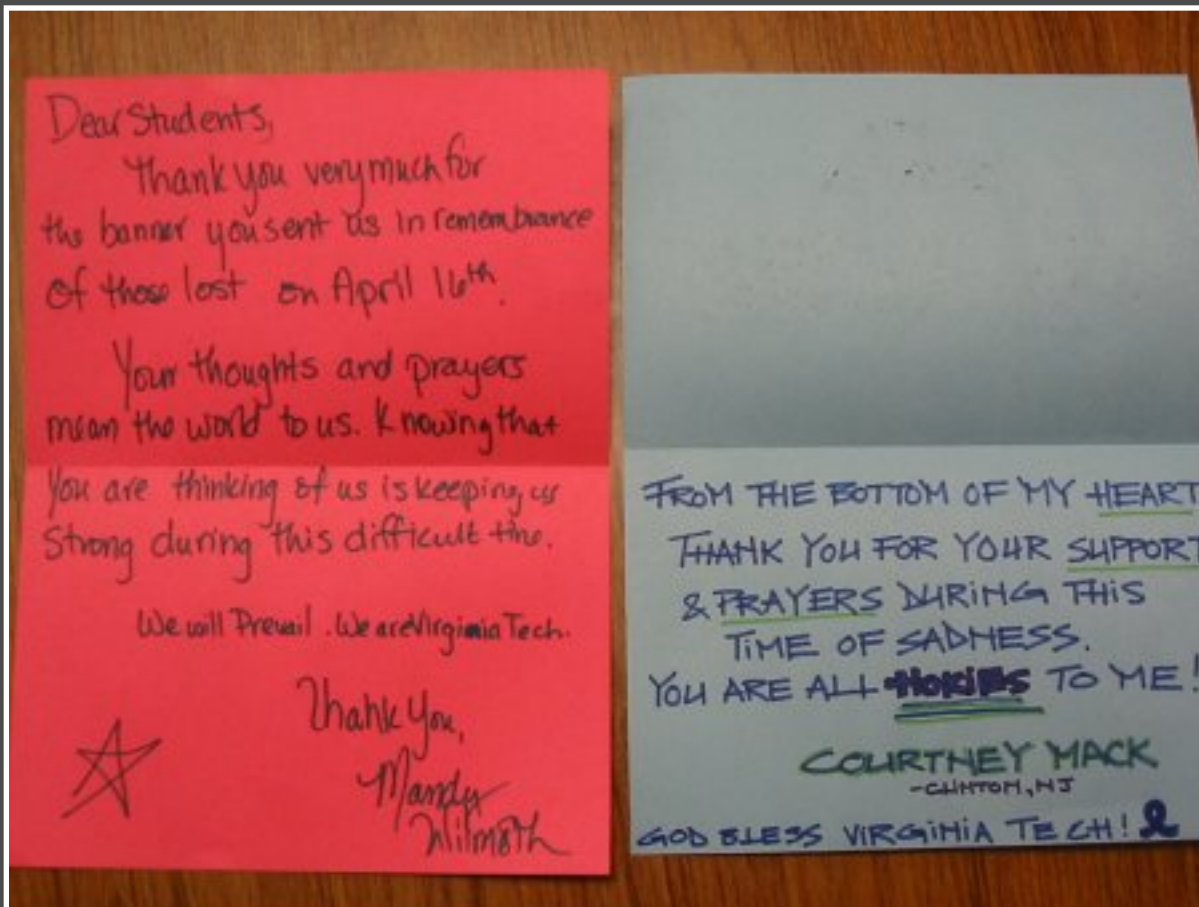 Dear Students,
Thank you very much for
the banner you sent us in remembrance
of those lost on April 16th.
Your thoughts and prayers
mean the world to us. Knowing that
you are thinking of us is keeping us
strong during this difficult time.
We will Prevail. We are Virginia Tech.
Thank You,
Mandy
Wilmoth
FROM THE BOTTOM OF MY HEART
THANK YOU FOR YOUR SUPPORT
& PRAYERS DURING THIS
TIME OF SADNESS.
YOU ARE ALL HOKIES TO ME!
COURTNEY MACK
-CLINTON, NJ
GOD BLESS VIRGINIA TECH!